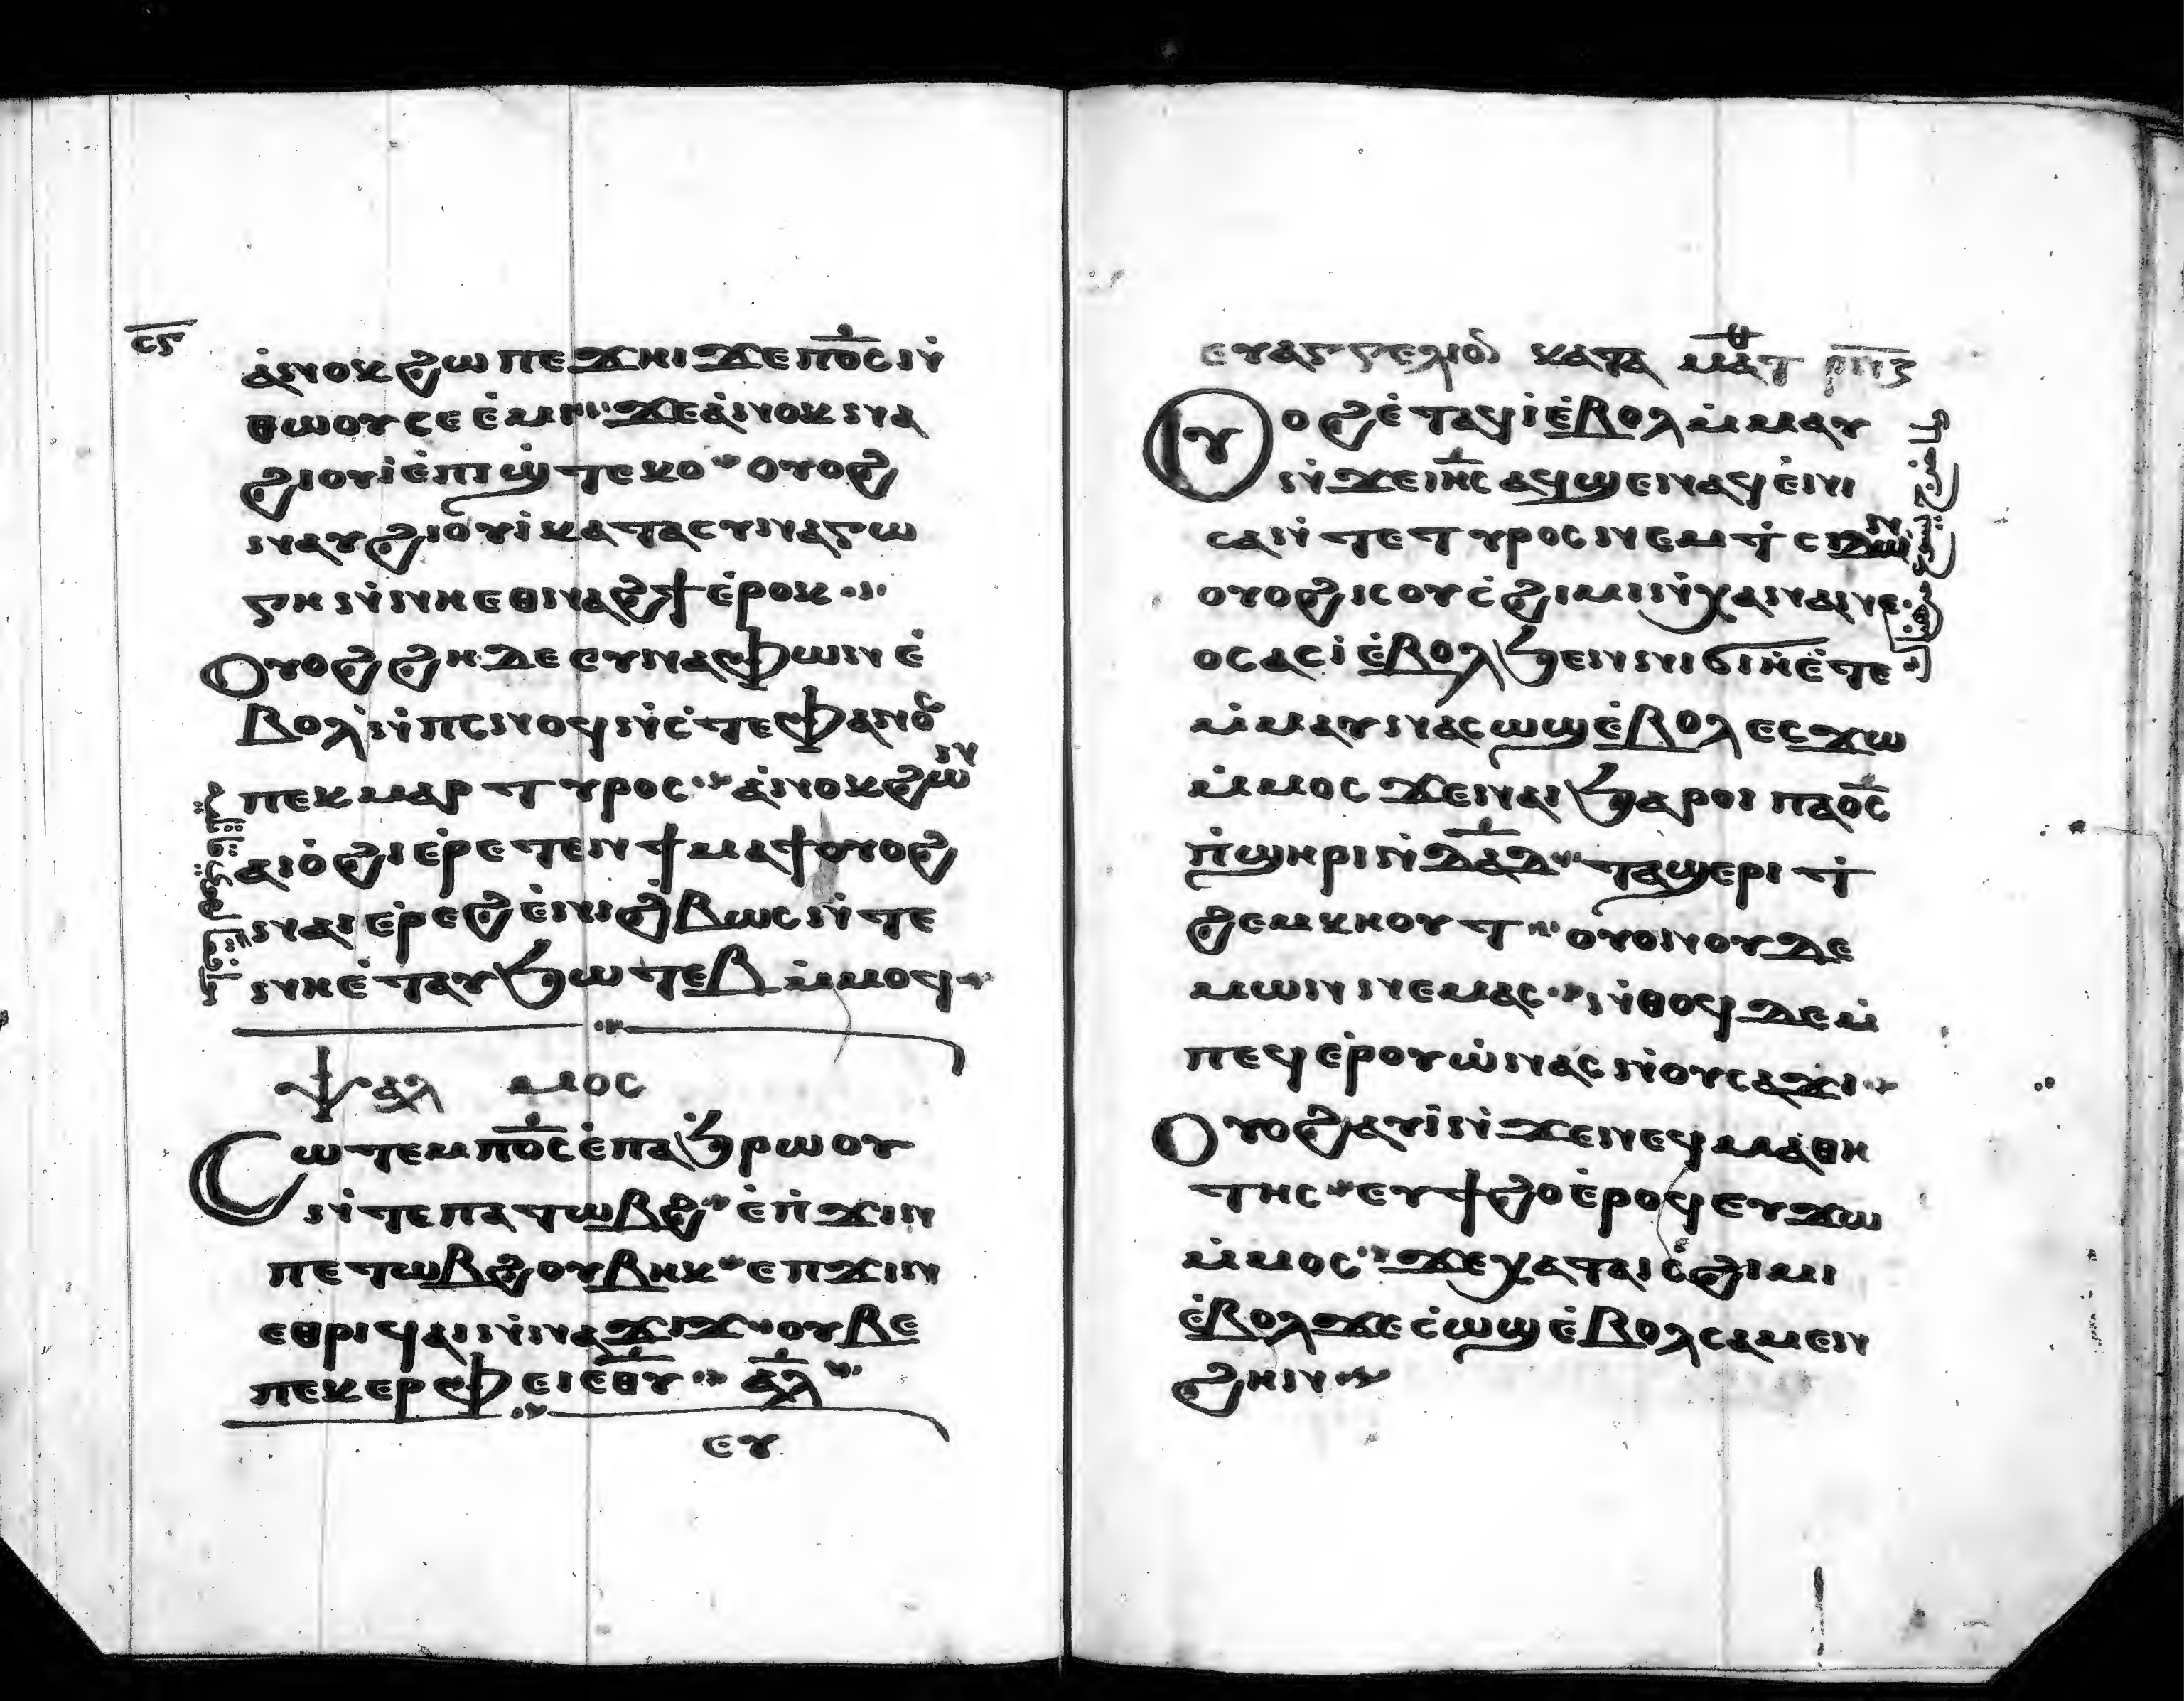 ⲥ̅ⲋ̅
ⲁ̇ⲛⲟⲕ ϩⲱ ⲡⲉϫⲏⲓ ϫⲉ ⲡ̅ⲟ̅ⲥ̅ ⲛ̇
ⲑⲱⲟⲩ ⲥⲉⲉ̇ⲙⲓ ϫⲉ ⲁ̇ⲛⲟⲕ ⲛⲁ
ϩⲓⲟⲩⲓ̇ ⲉ̇ⲡⲓϣⲧⲉⲕⲟ ⲟⲩⲟϩ
ⲛⲁⲩϩⲓⲟⲩⲓ̇ ⲕⲁⲧⲁ ⲥⲩⲛⲁⲅⲱ
ⲅⲏ ⲛ̇ⲛⲏⲉⲑⲛⲁϩϯ ⲉ̇ⲣⲟⲕ
Ⲟⲩⲟϩ ϩⲏⲇⲉ ⲉⲩⲛⲁⲫⲱⲛ ⲉ̇
ⲃⲟⲗ ⲛ̇ⲡⲥⲛⲟϥ ⲛ̇ⲥ̇ⲧⲉⲫⲁⲛⲟⲥ
ⲡⲉⲕⲙⲁⲣⲧⲩⲣⲟⲥ ⲁ̇ⲛⲟⲕ ϩⲱ ⲛ
ⲁⲓⲟ̇ϩⲓ ⲉ̇ⲣⲉⲧⲉⲛ ϯⲙⲁϯ ⲟⲩⲟϩ
ⲛⲁⲓⲉ̇ⲣⲉϩ ⲉ̇ⲛⲓϩ̇ⲃⲱⲥ ⲛ̇ⲧⲉ
ⲛⲏⲉ̇ⲧⲁⲩϧⲱⲧⲉⲃ ⲙ̇ⲙⲟϥ
ⲯⲁⲗ ⲙⲟⲥ
Ⲥⲱⲧⲉⲙ ⲡ̅ⲟ̅ⲥ̅ ⲉ̇ⲡⲁϧⲣⲱⲟⲩ
ⲛ̇ⲧⲉ ⲡⲁⲧⲱⲃϩ ⲉ̇ⲡ̇ϫⲓⲛ
ⲡⲉⲧⲱⲃϩ ⲟⲩⲃⲏⲕ ⲉⲡϫⲓⲛ
ⲉⲑⲣⲓϥⲁⲓ ⲛ̇ⲛⲁϫⲓϫ ⲟⲩⲃⲉ
ⲡⲉⲕⲉⲣⲫⲉⲓ ⲉ̅ⲑ̅ⲩ̅ ⲁ̅ⲗ̅
ⲉⲩ
ⲉⲩⲁⲅⲅⲉⲗⲓⲟⲛ ⲕⲁⲧⲁ ⲙⲁⲧ
Ⲟⲩⲟϩ ⲉ̇ⲧⲁϥⲓ̇ ⲉ̇ⲃⲟⲗ ⲙ̇ⲙⲁⲩ
ⲛ̇ϫⲉ ⲓ̅ⲏ̅ⲥ̅ ⲁϥϣⲉⲛⲁϥ ⲉ̇ⲛⲓ
ⲥⲁ ⲛ̇ⲧⲉ ⲧⲩⲣⲟⲥ ⲛⲉⲙ ⲧ̇ⲥⲓⲇⲱⲛ
ⲟⲩⲟϩ ⲓⲥ ⲟⲩⲥ̇ϩⲓⲙⲓ ⲛ̇ⲭⲁⲛⲁⲛⲉ
ⲟⲥ ⲁⲥⲓ̇ ⲉ̇ⲃⲟⲗ ϧⲉⲛ ⲛⲓϭⲓⲏ ⲉ̇ⲧⲉ
ⲙ̇ⲙⲁⲩ ⲛⲁⲥⲱϣ ⲉ̇ⲃⲟⲗ ⲉⲥϫⲱ
ⲙ̇ⲙⲟⲥ ϫⲉ ⲛⲁⲓ ϧⲁⲣⲟⲓ ⲡⲁ̅ⲟ̅ⲥ̅
ⲡ̇ϣⲏⲣⲓ ⲛ̇ⲇ̅ⲁ̅ⲇ̅ ⲧⲁϣⲉⲣⲓ ⲧ̇
ϩⲉⲙⲕⲏⲟⲩⲧ ⲟⲩⲟⲛ ⲟⲩⲇⲉ
ⲙⲱⲛ ⲛⲉⲙⲁⲥ ⲛ̇ⲑⲟϥ ⲇⲉ ⲙ̇
ⲡⲉϥⲉ̇ⲣⲟⲩⲱ̇ ⲛⲁⲥ ⲛ̇ⲟⲩⲥⲁϫⲓ
Ⲟⲩⲟϩ ⲁⲩⲓ̇ ⲛ̇ϫⲉ ⲛⲉϥⲙⲁⲑⲏ
ⲧⲏⲥ ⲉⲩϯϩⲟ ⲉ̇ⲣⲟϥ ⲉⲩϫⲱ
ⲙ̇ⲙⲟⲥ ϫⲉ ⲭⲁ ⲧⲁⲓⲥ̇ϩⲓⲙⲓ
ⲉ̇ⲃⲟⲗ ϫⲉ ⲥ̇ⲱϣ ⲉ̇ⲃⲟⲗ ⲥⲁⲙⲉⲛ
ϩⲏⲛ